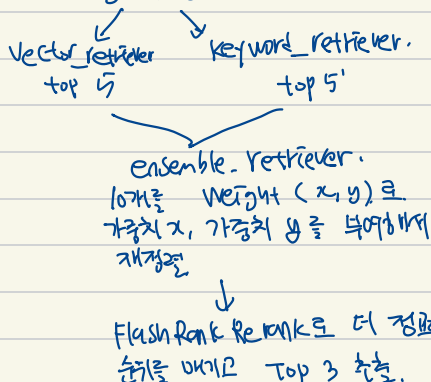 vector_retriever
top 5
keyword_retriever.
top 5'
ensemble_retriever.
10개를 weight (x, y)로
가중치 x, 가중치 y를 부여해서
재정렬
FlashRank Rerank로 더 정교
순위를 매기고 Top 3 추출.